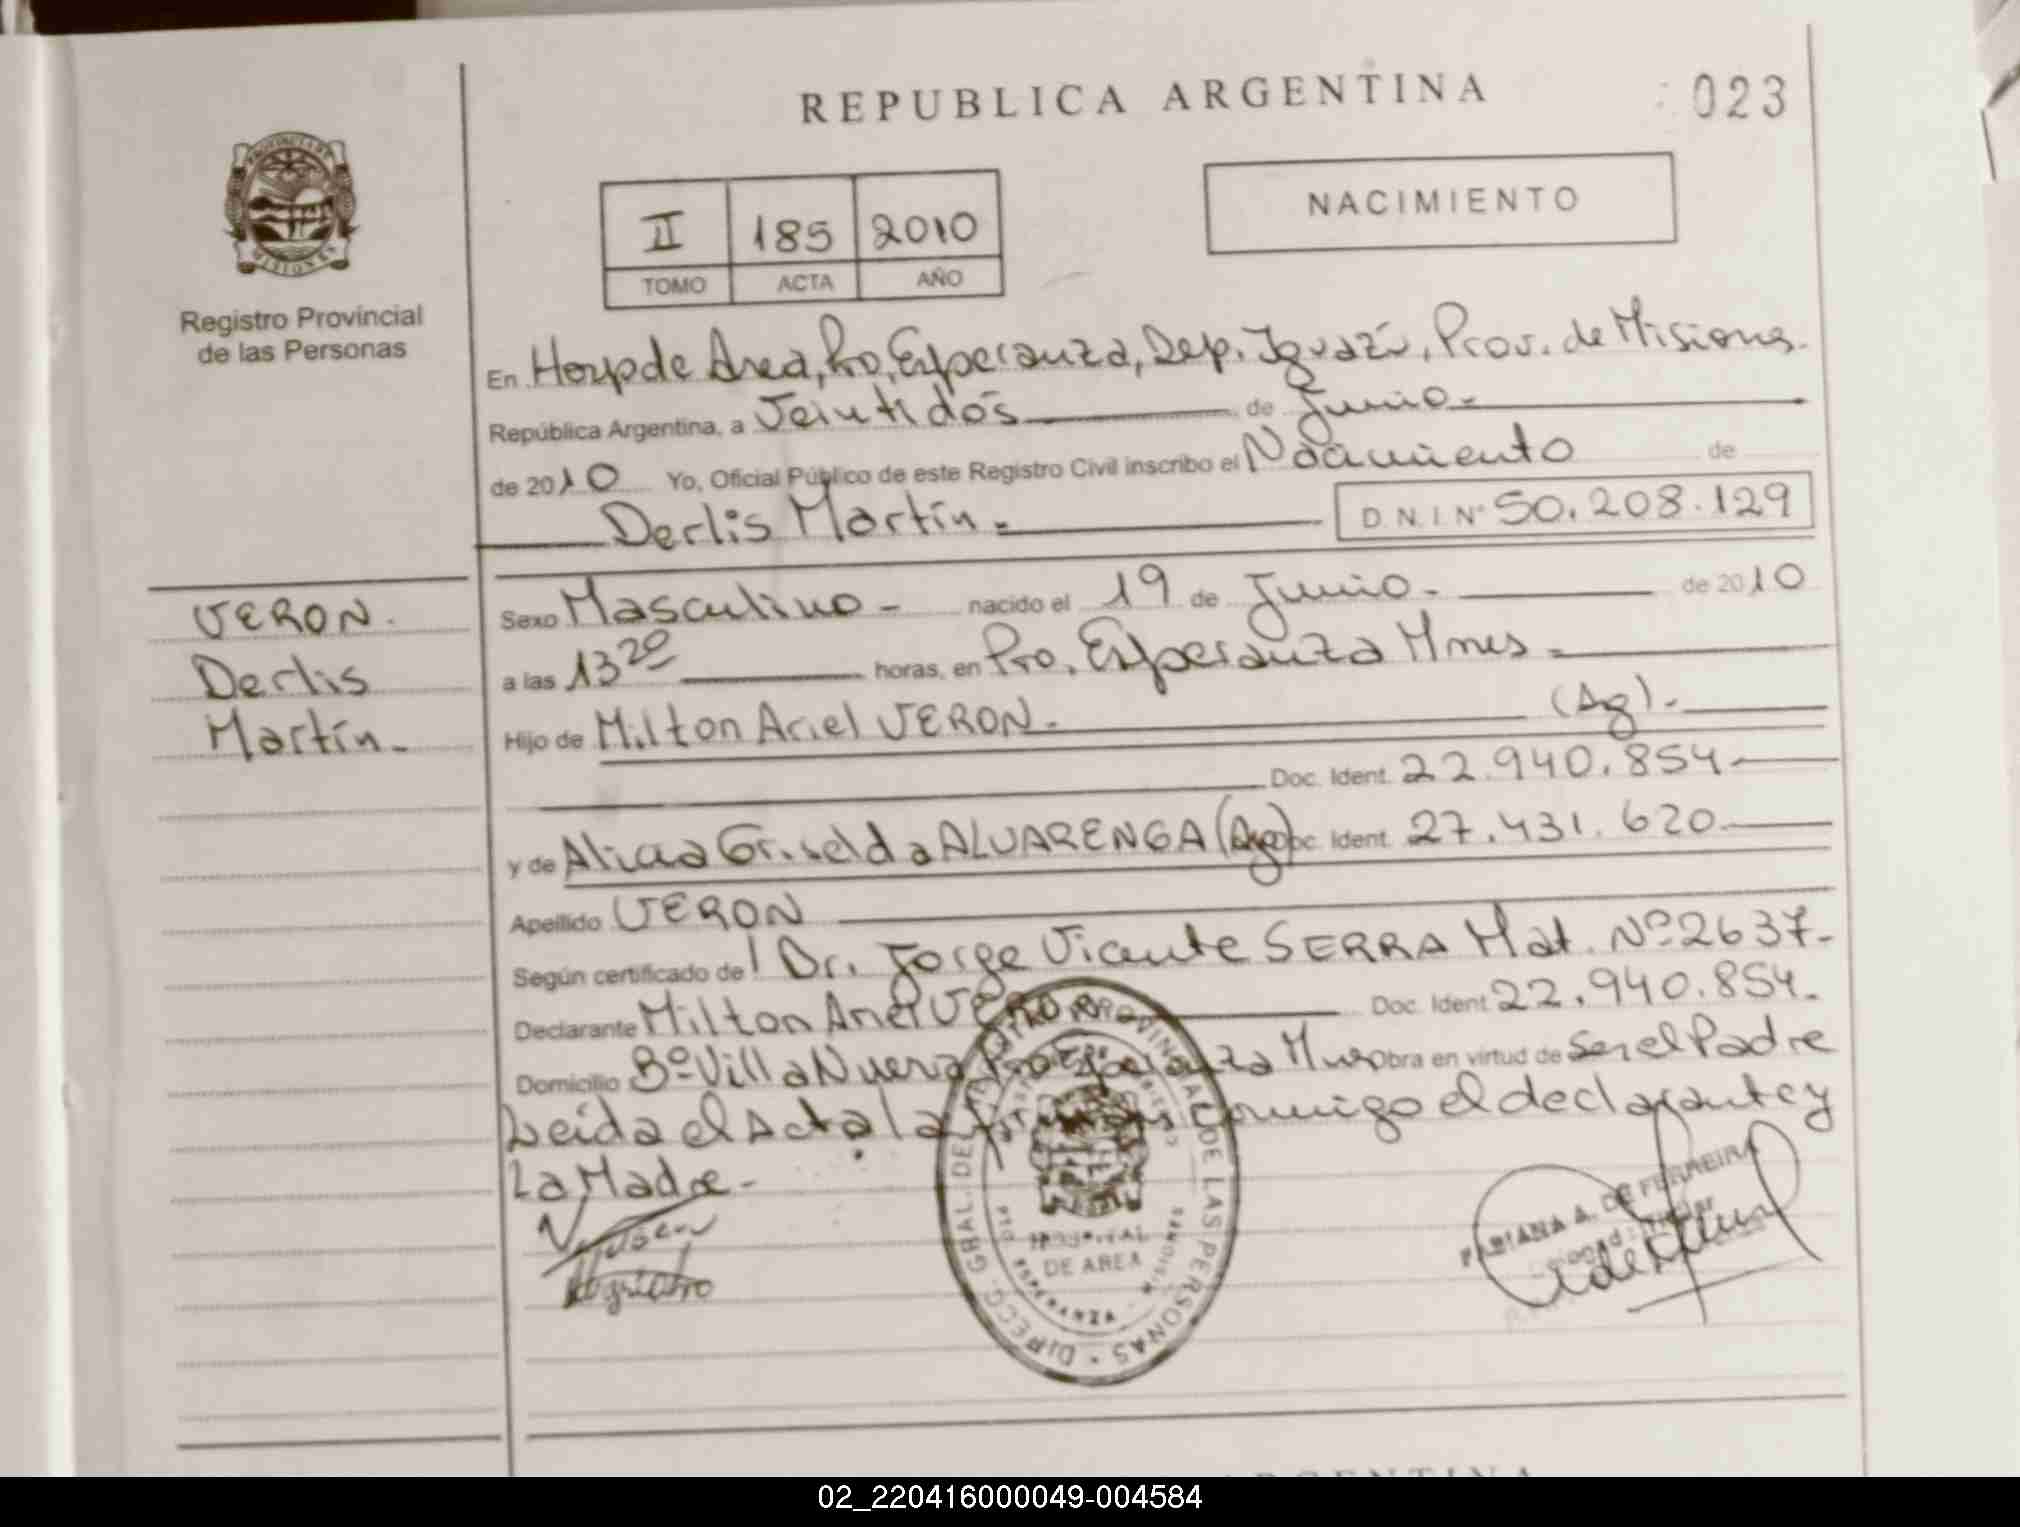 REPUBLICA ARGENTINA
023
PROVINCIA DE
MISIONES
Registro Provincial
de las Personas
II 185 2010
TOMO ACTA AÑO
NACIMIENTO
En Hosp de Area, Pto, Esperanza, Dep. Iguazú, Prov. de Misiones.
República Argentina, a Veintidós de Junio.
de 2010 Yo, Oficial Público de este Registro Civil inscribo el Nacimiento de
Derlis Martín. D.N.I Nº 50.208.129
VERON.
Derlis
Martín.
Sexo Masculino - nacido el 19 de Junio. de 2010
a las 13 20 horas, en Pto. Esperanza Mnes.
Hijo de Milton Ariel VERON. (Ag).
Doc. Ident. 22.940.854
y de Alicia Griselda ALVARENGA (Ag) Doc. Ident. 27.431.620.
Apellido VERON
Según certificado del Dr. Jorge Vicente SERRA Mat. Nº 2637-
Declarante Milton Ariel VERON Doc. Ident 22.940.854.
Domicilio Bº Villa Nueva Pto Esperanza Mnes Obra en virtud de Ser el Padre
Leída el Acta la firman conmigo el declarante y
La Madre.
DIRECC. GRAL. DEL REGISTRO PROVINCIAL DE LAS PERSONAS
HOSPITAL
DE AREA
PTO. ESPERANZA
FABIANA A. DE FERREIRA
ARGENTINA
02_220416000049-004584